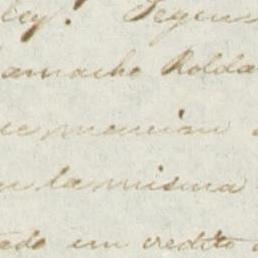 ley. Segun
amacho Rolda
ue mencion
n la misma
tado em credito